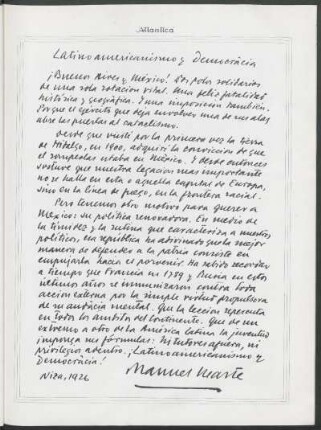 Atlantica
Latinoamericanismo y Democracia
¡Buenos Aires y México! Dos polos solidarios
de una sola rotación vital. Una feliz fatalidad
histórica y geográfica. Y una imposición también.
Porque el ejército que deja envolver una de sus alas
abre las puertas al cataclismo.
Desde que visité por la primera vez la tierra
de Hidalgo, en 1900, adquirí la convicción de que
el rompeolas estaba en México. Y desde entonces
sostuve que nuestra legación más importante
no se halla en esta o aquella capital de Europa,
sino en la línea de fuego, en la frontera racial.
Pero tenemos otro motivo para querer a
México: su política renovadora. En medio de
la timidez y la rutina que caracteriza a nuestros
políticos, esa república ha adivinado que la mejor
manera de defender a la patria consiste en
empujarla hacia el porvenir. Ha sabido recordar
a tiempo que Francia en 1789 y Rusia en estos
últimos años se inmunizaron contra toda
acción externa por la simple virtud propulsora
de su audacia mental. Que la lección repercuta
en todos los ámbitos del Continente. Que de un
extremo a otro de la América latina la juventud
imponga sus fórmulas: Ni tutores afuera, ni
privilegios adentro. ¡Latinoamericanismo y
Democracia!
Manuel Ugarte
Niza, 1926